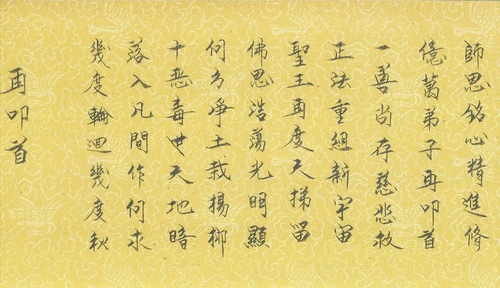 再叩首
幾度輪迴幾度秋
落入凡間作何求
十惡毒世天地暗
何方淨土栽楊柳
佛恩浩蕩光明顯
聖王再度天梯留
正法重組新宇宙
一善尚存慈悲救
億萬弟子再叩首
師恩銘心精進修